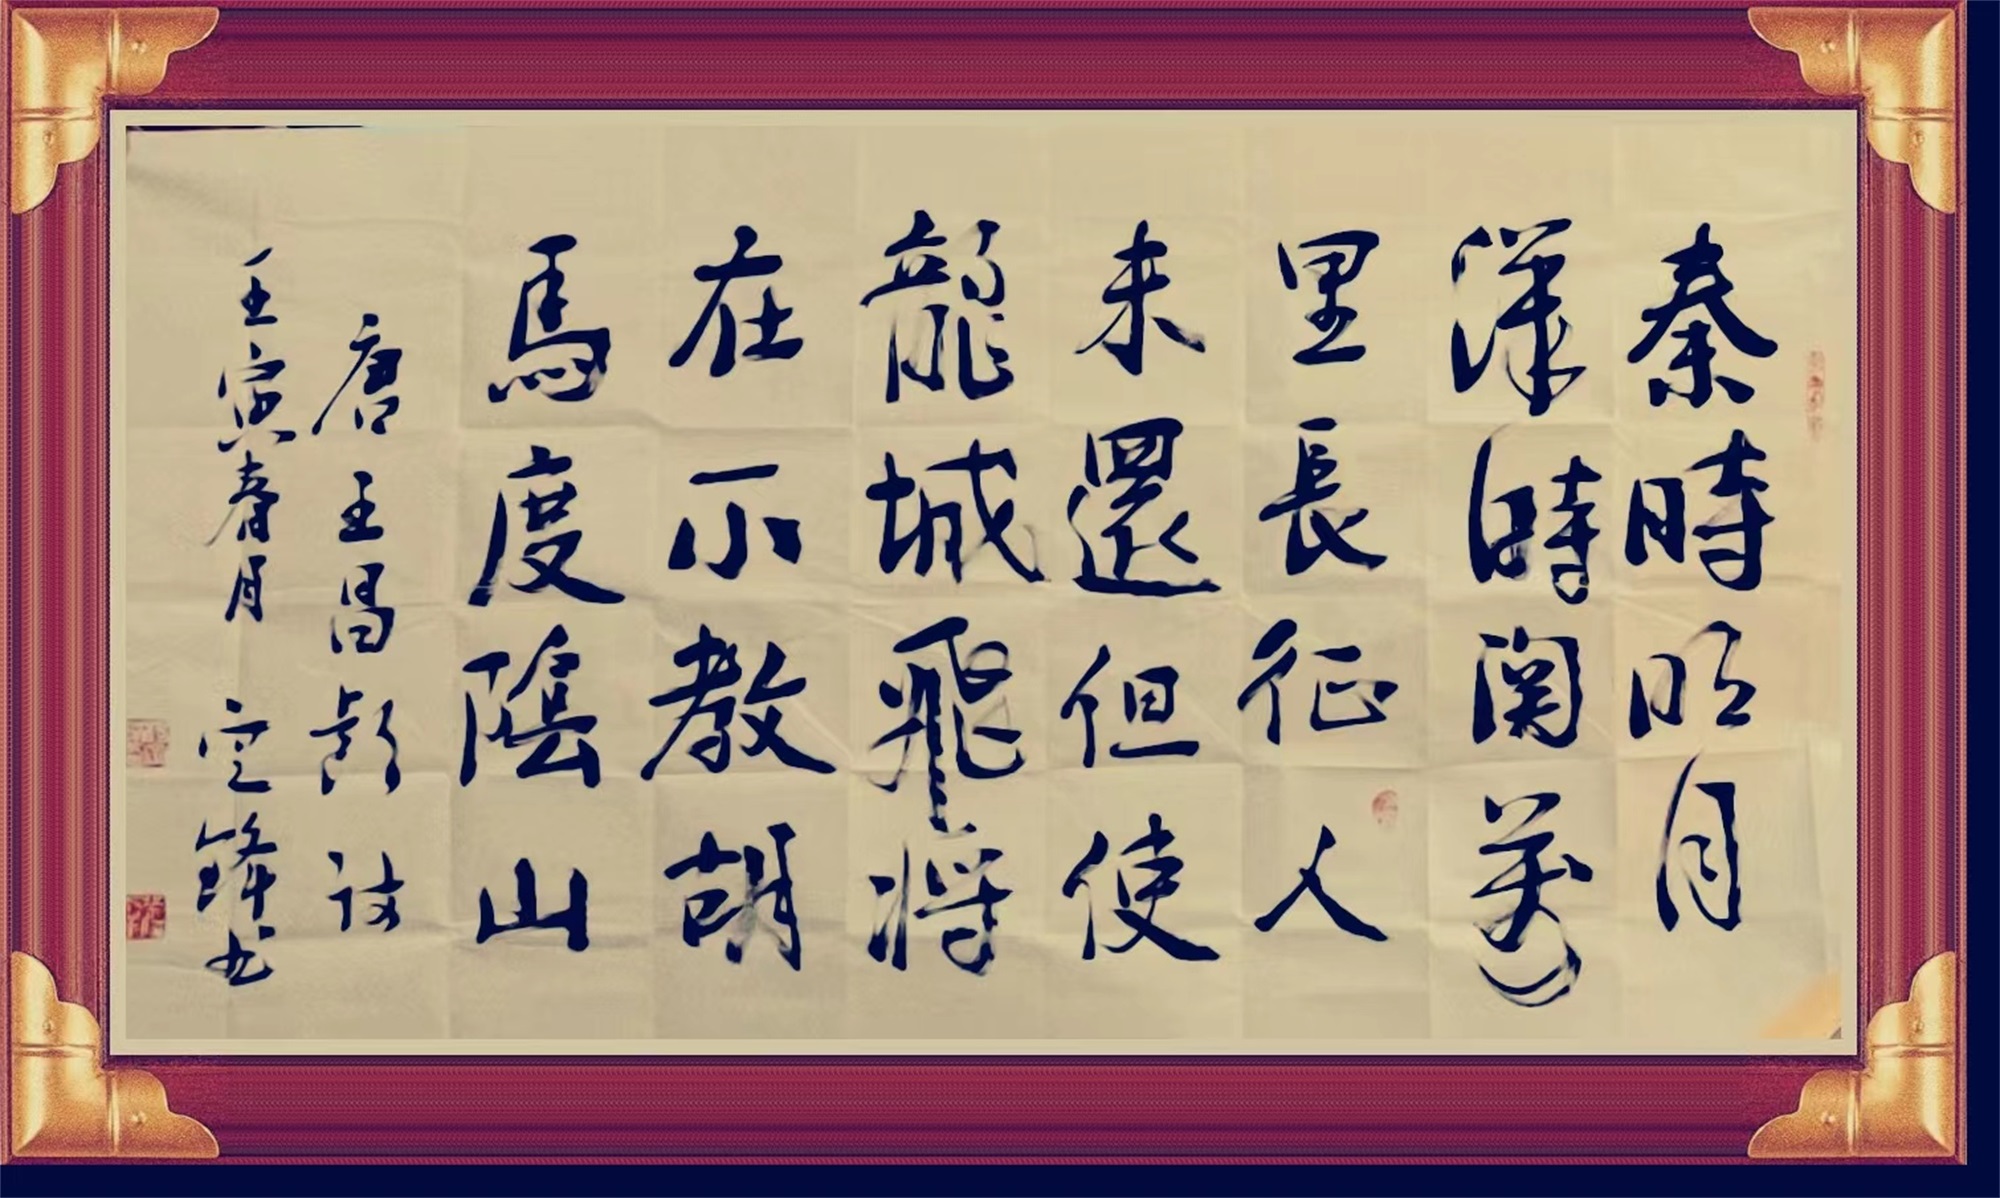 秦時明月
漢時関萬
里長征人
未還但使
龍城飛將
在不教胡
馬度陰山
唐王昌齡詩
壬寅春月 空鋒书